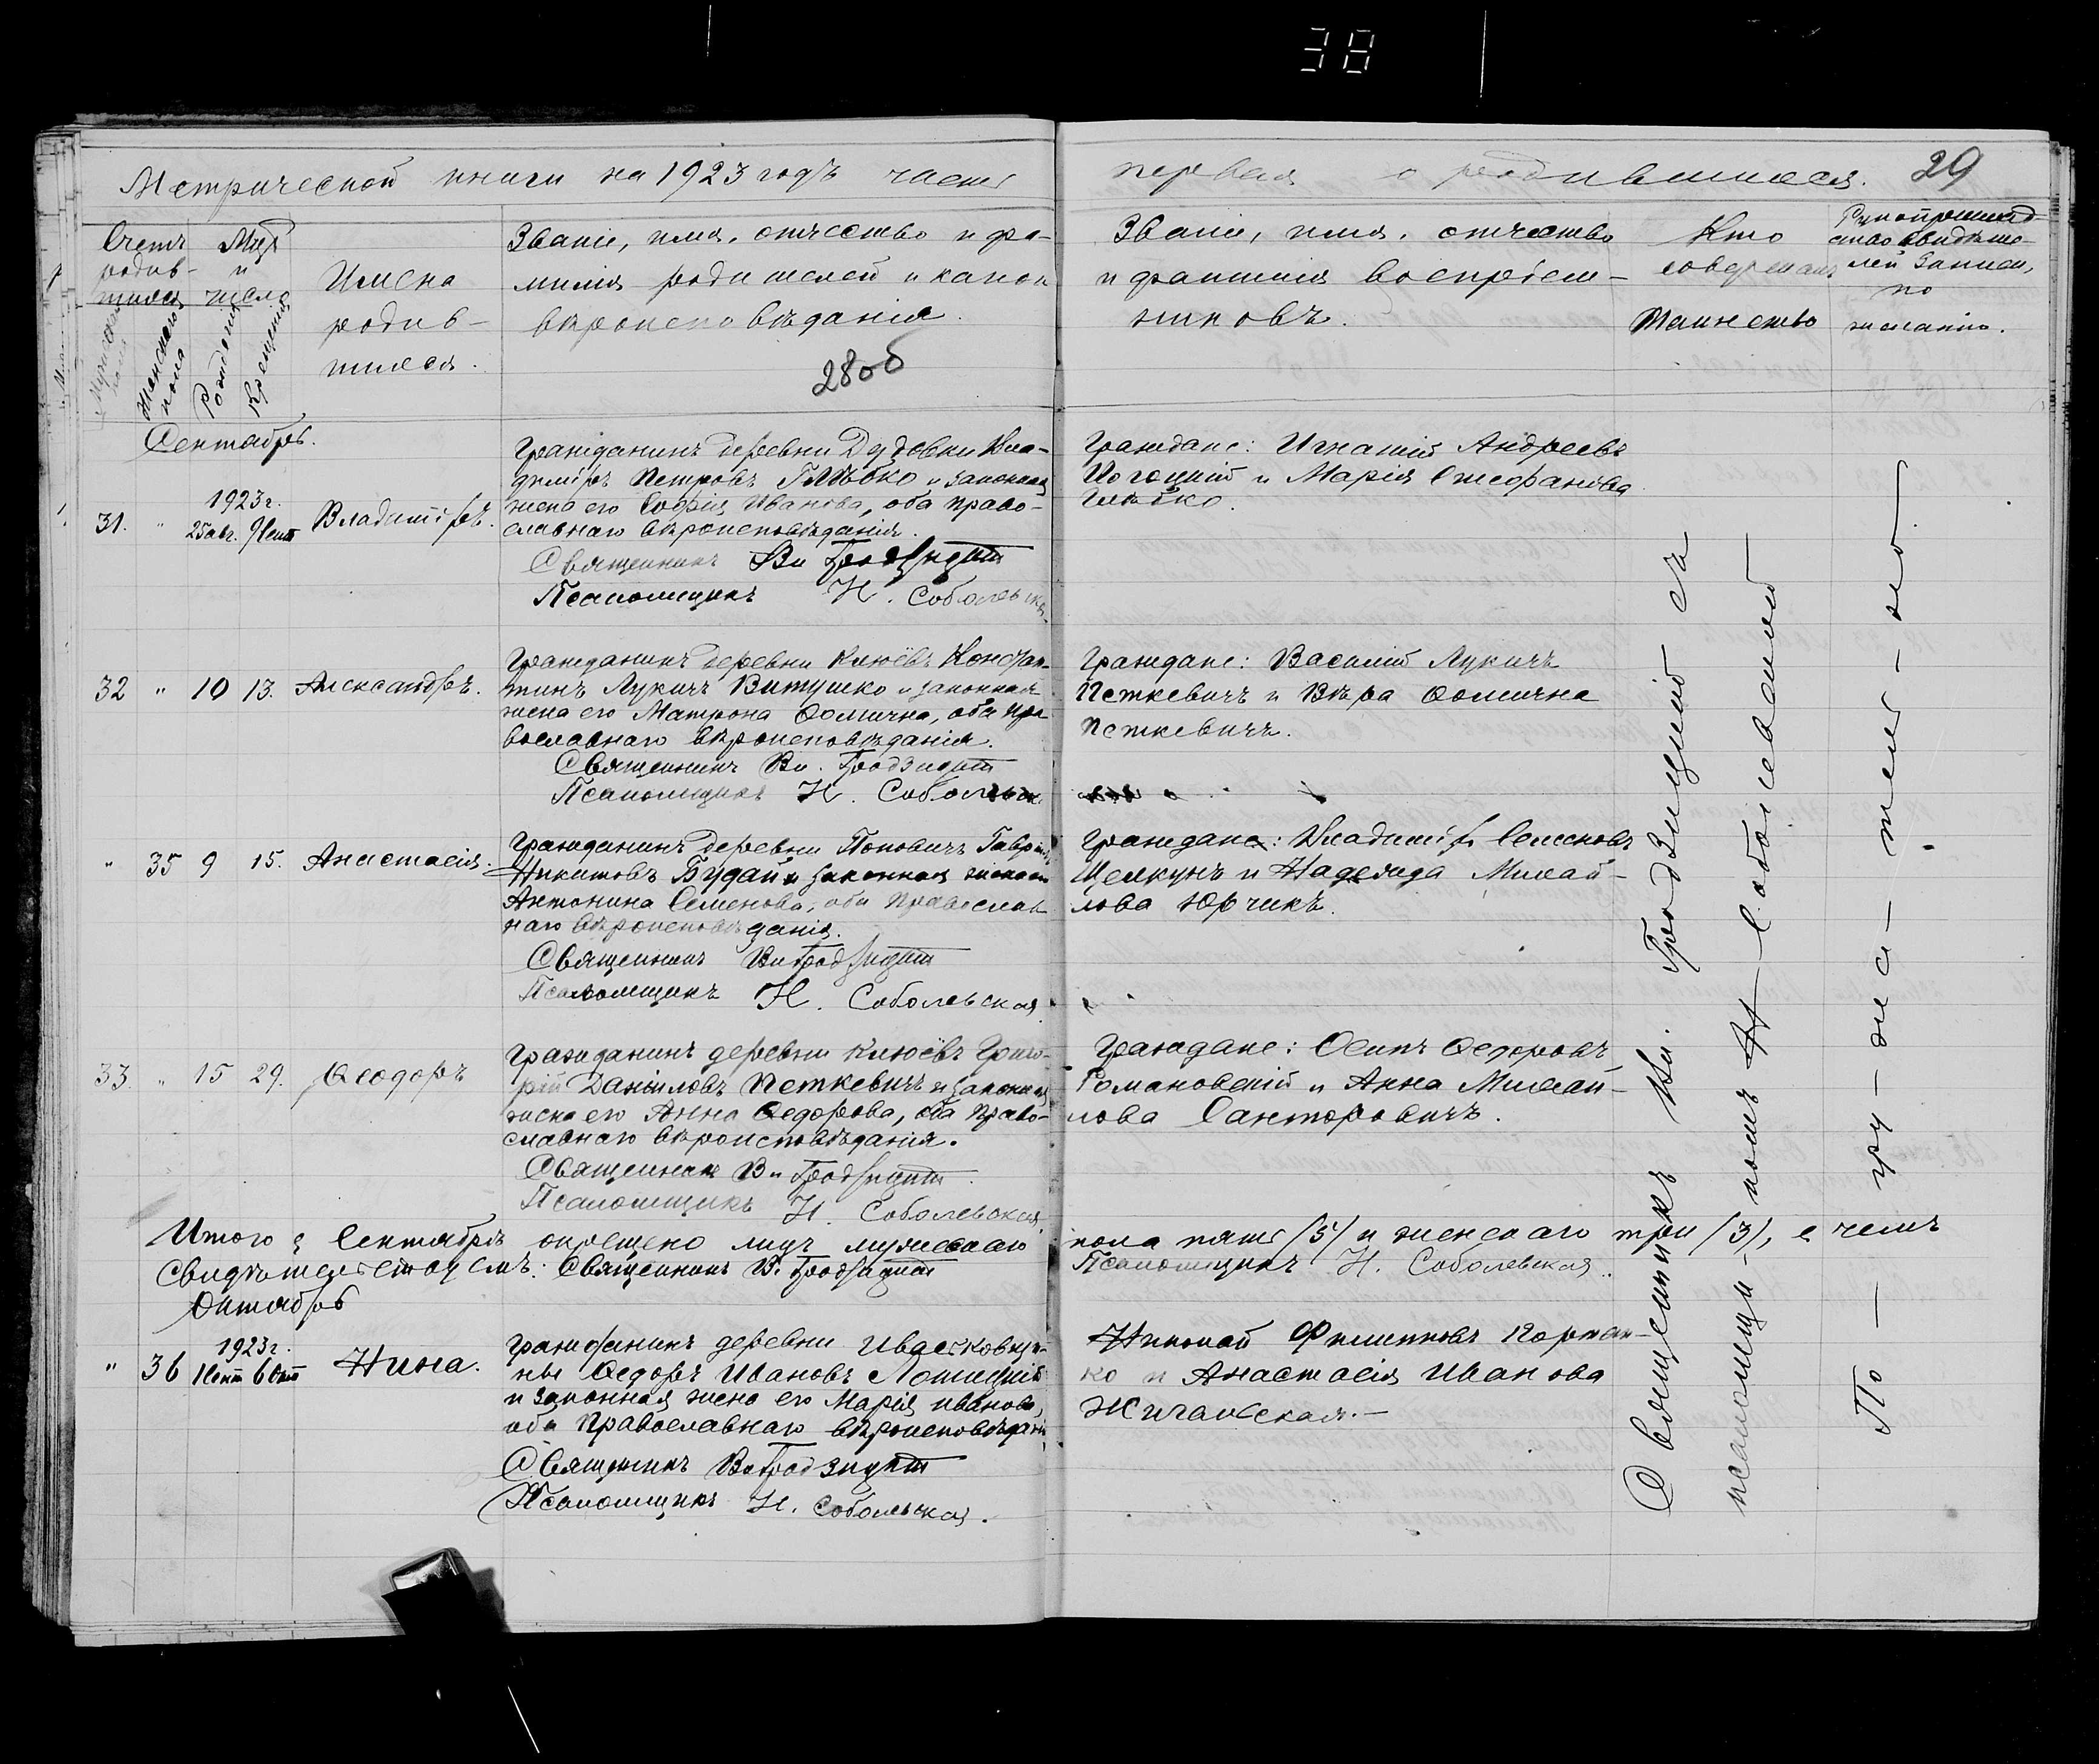 38
Метрической книги на 1923 годъ часть
первая о родившихся. 29
Счетъ родив-шихся
Мужскаго пола
Женскаго пола
Мцъ и число
Рожденія
Крещенія
Имена
родив-
шихся.
Званіе, имя, отчество и фа-
милія родителей и какой
вѣроисповѣданія.
28об
Званіе, имя, отчество
и фамилія воспріем-
никовъ.
Кто
совершалъ
Таинство
по
желанію.
Сентябрь.
31. " 1923г. 25авг. 9/Сент Владиміръ.
Гражданинъ деревни Дудовки Вла-
диміръ Петровъ Глѣбко и законная
жена его Софія Иванова, оба право-
славнаго вѣроисповѣданія.
Священникъ Вл Гродзицкій
Псаломщикъ Н. Соболевская.
Граждане: Игнатій Андреевъ
и Марія Стефанова
Глѣбко.
32 " 10 13. Александръ.
Гражданинъ деревни Клюёвъ Констан-
тинъ Лукичъ Витушко и законная
жена его Матрона Ѳомична, оба пра
вославнаго вѣроисповѣданія.
Священникъ Вл. Гродзицкій
Псаломщикъ Н. Соболевск
Граждане: Василій Лукичъ
Петкевичъ и Вѣра Ѳомична
Петкевичъ.
" 35 9 15. Анастасія.
Гражданинъ деревни Поповичъ Гавріилъ
Никитовъ Будай и законная жена его
Антонина Семенова, оба Православ
наго вѣроисповѣданія.
Священникъ Вл Гродзицкій
Псаломщикъ Н. Соболевская.
Граждане: Владиміръ Семеновъ
Щелкунъ и Надежда Михай-
лова Юрчикъ.
33. " 15 29. Ѳеодоръ
Гражданинъ деревни Клюёвъ Григо-
рій Даниловъ Петкевичъ и законная
жена его Анна Ѳедорова, оба право-
славнаго вѣроисповѣданія.
Священникъ Вл Гродзицкій.
Псаломщикъ Н. Соболевская
Граждане: Осипъ Ѳедоровъ
Романовскій и Анна Михай-
лова Санторовичъ.
Итого в Сентябрѣ окрещено лицъ мужескаго
пола пять /5/ и женскаго три /3/, в чемъ
свидѣтельствуемъ: Священникъ В. Гродзицкій
Псаломщикъ Н. Соболевская.
Октябрь
" 36 1923г. 1Сент 6Окт Нина.
Гражданинъ деревни
ны Ѳедоръ Ивановъ
и законная жена его Марія Иванова,
оба Православнаго вѣроисповѣдані
Священникъ Вл Гродзицкій
Псаломщикъ Н. Соболевская.
Николай Филипповъ Коржен-
ко и Анастасія Иванова
Жигальская.—
Священникъ Вл. Гродзицкій съ
псаломщи-комъ Н Соболевской
По — ру-жи-тел-но.